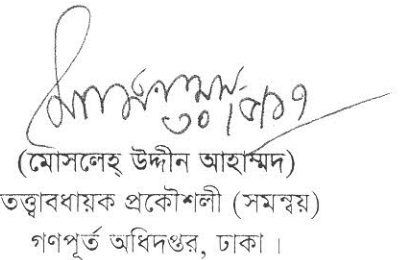 (মোসলেহ্ উদ্দীন আহাম্মদ)
তত্ত্বাবধায়ক প্রকৌশলী (সমন্বয়)
গণপূর্ত অধিদপ্তর, ঢাকা ।